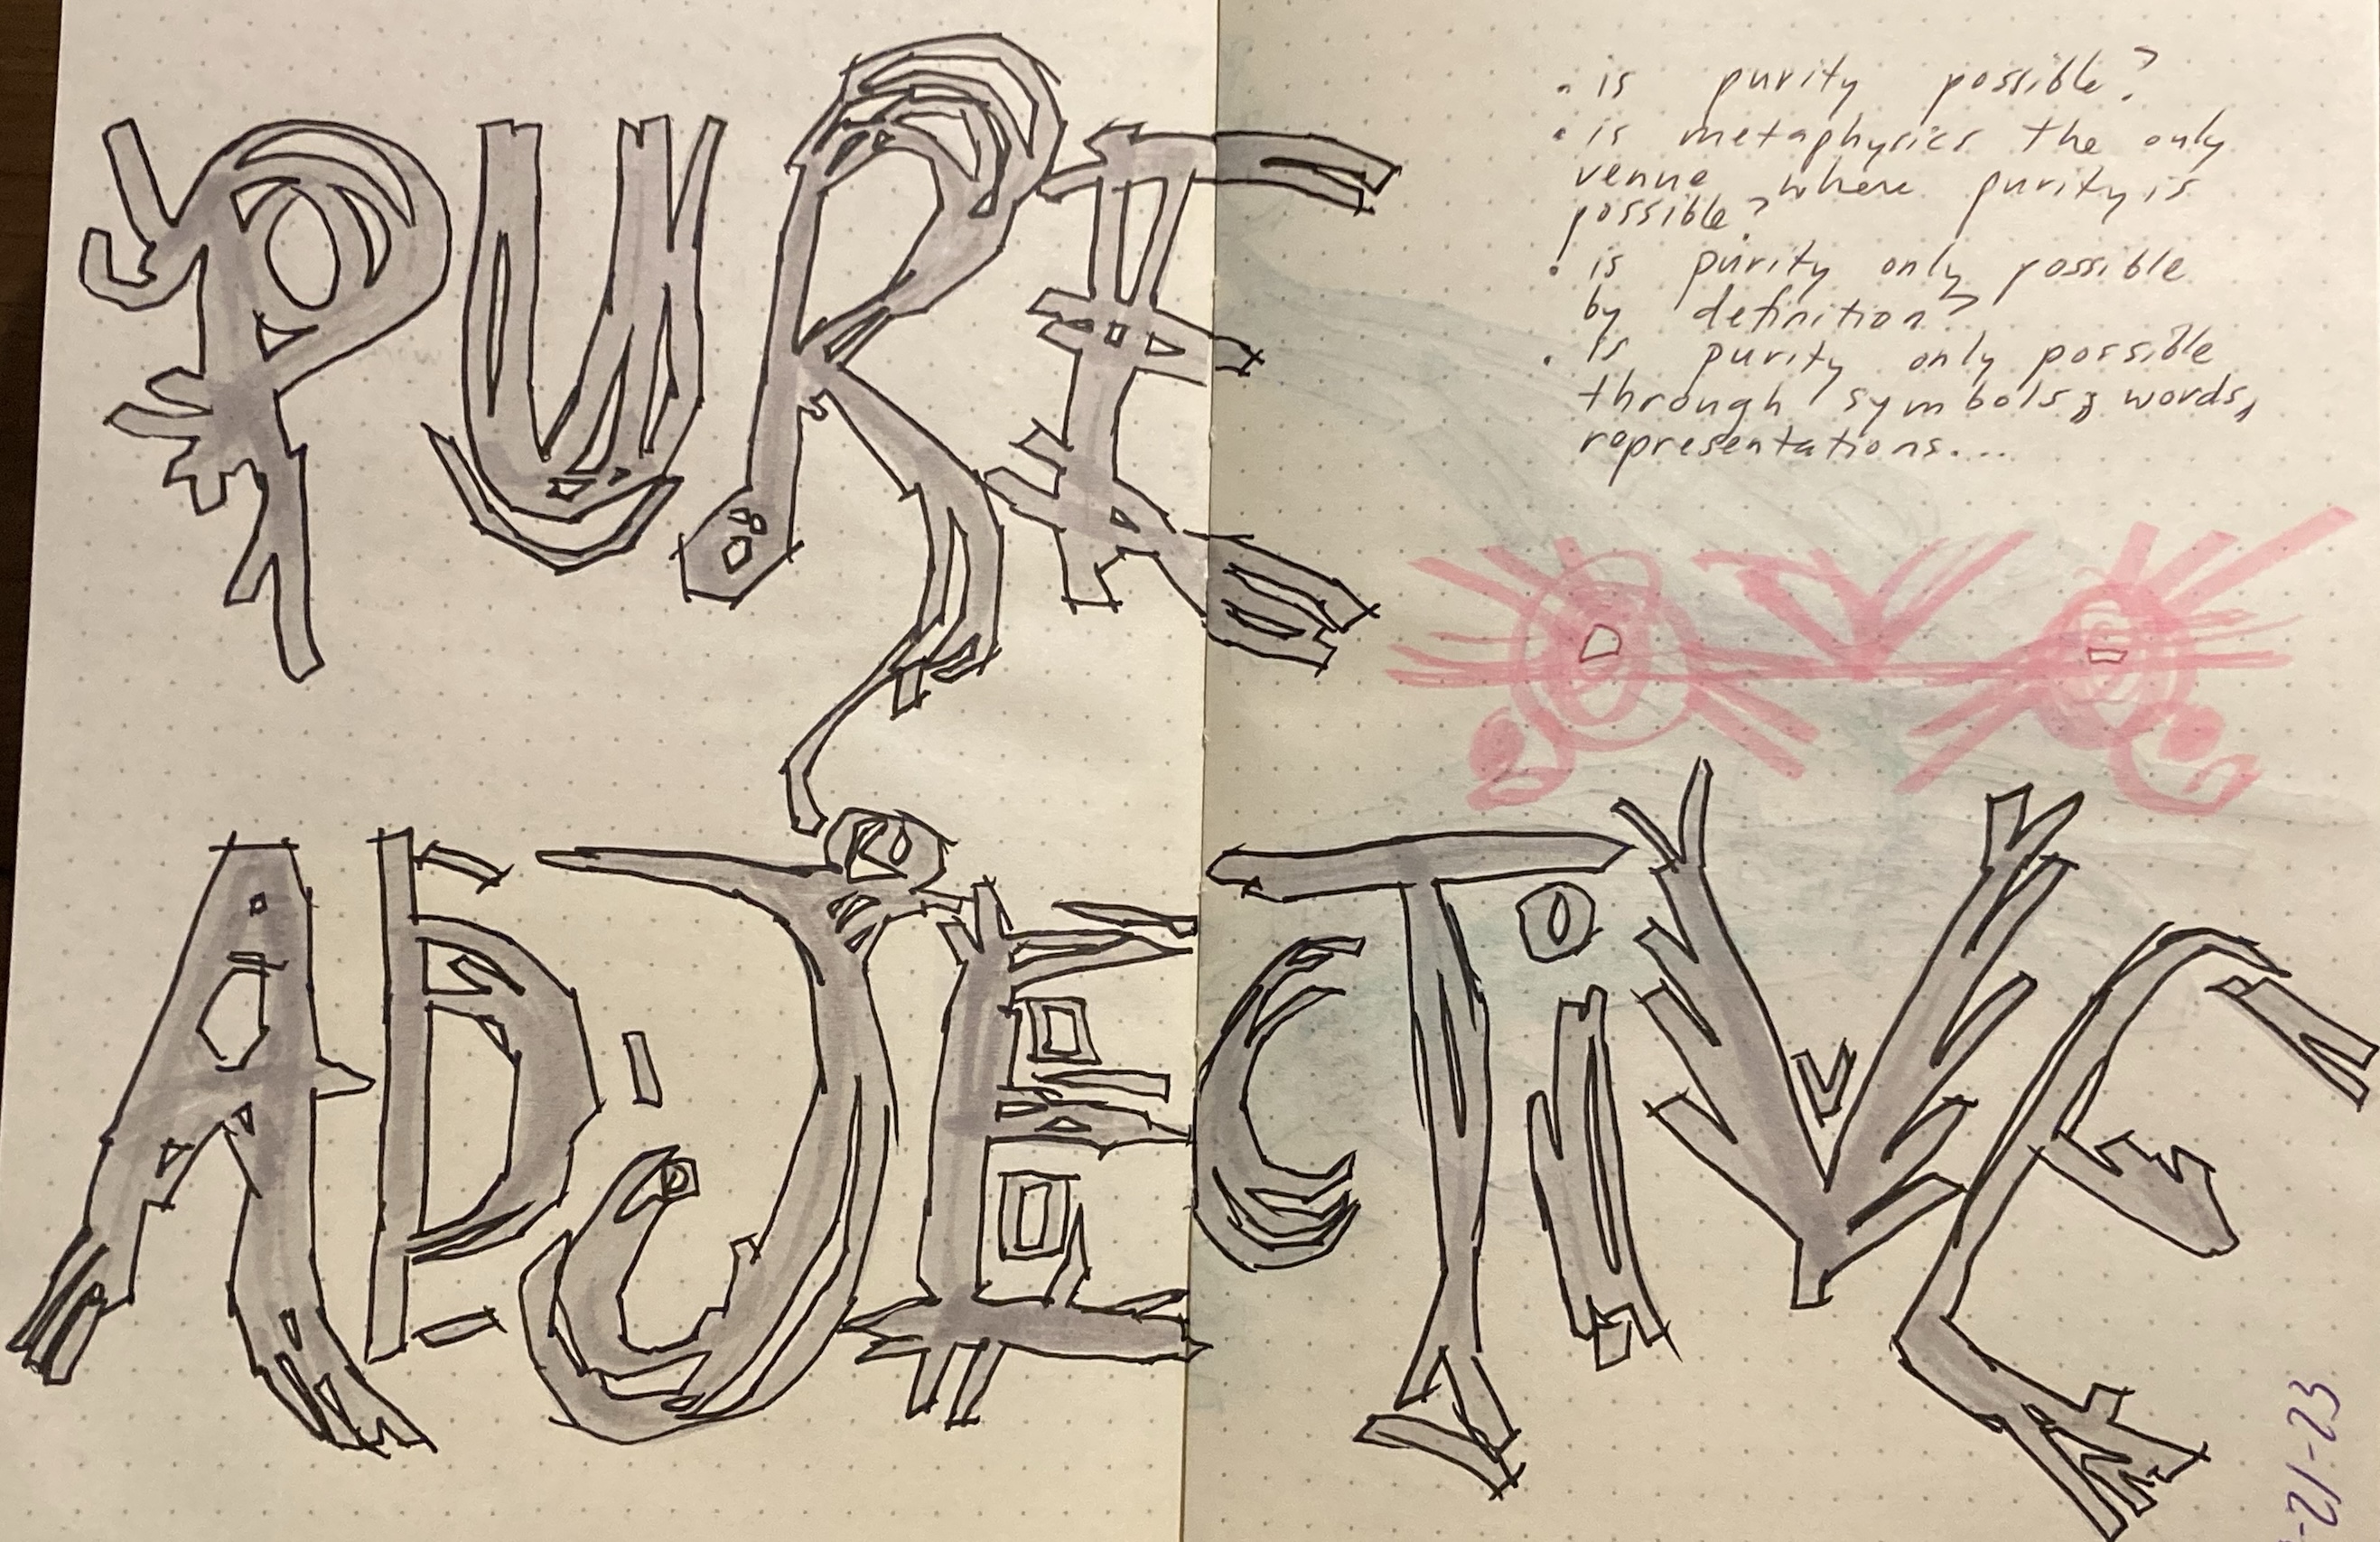 PURE
• is purity possible?
• is metaphysics the only
venue where purity is
possible?
• is purity only possible
by definition?
• Is purity only possible
through symbols, words,
representations....
ADJECTIVE
-21-23